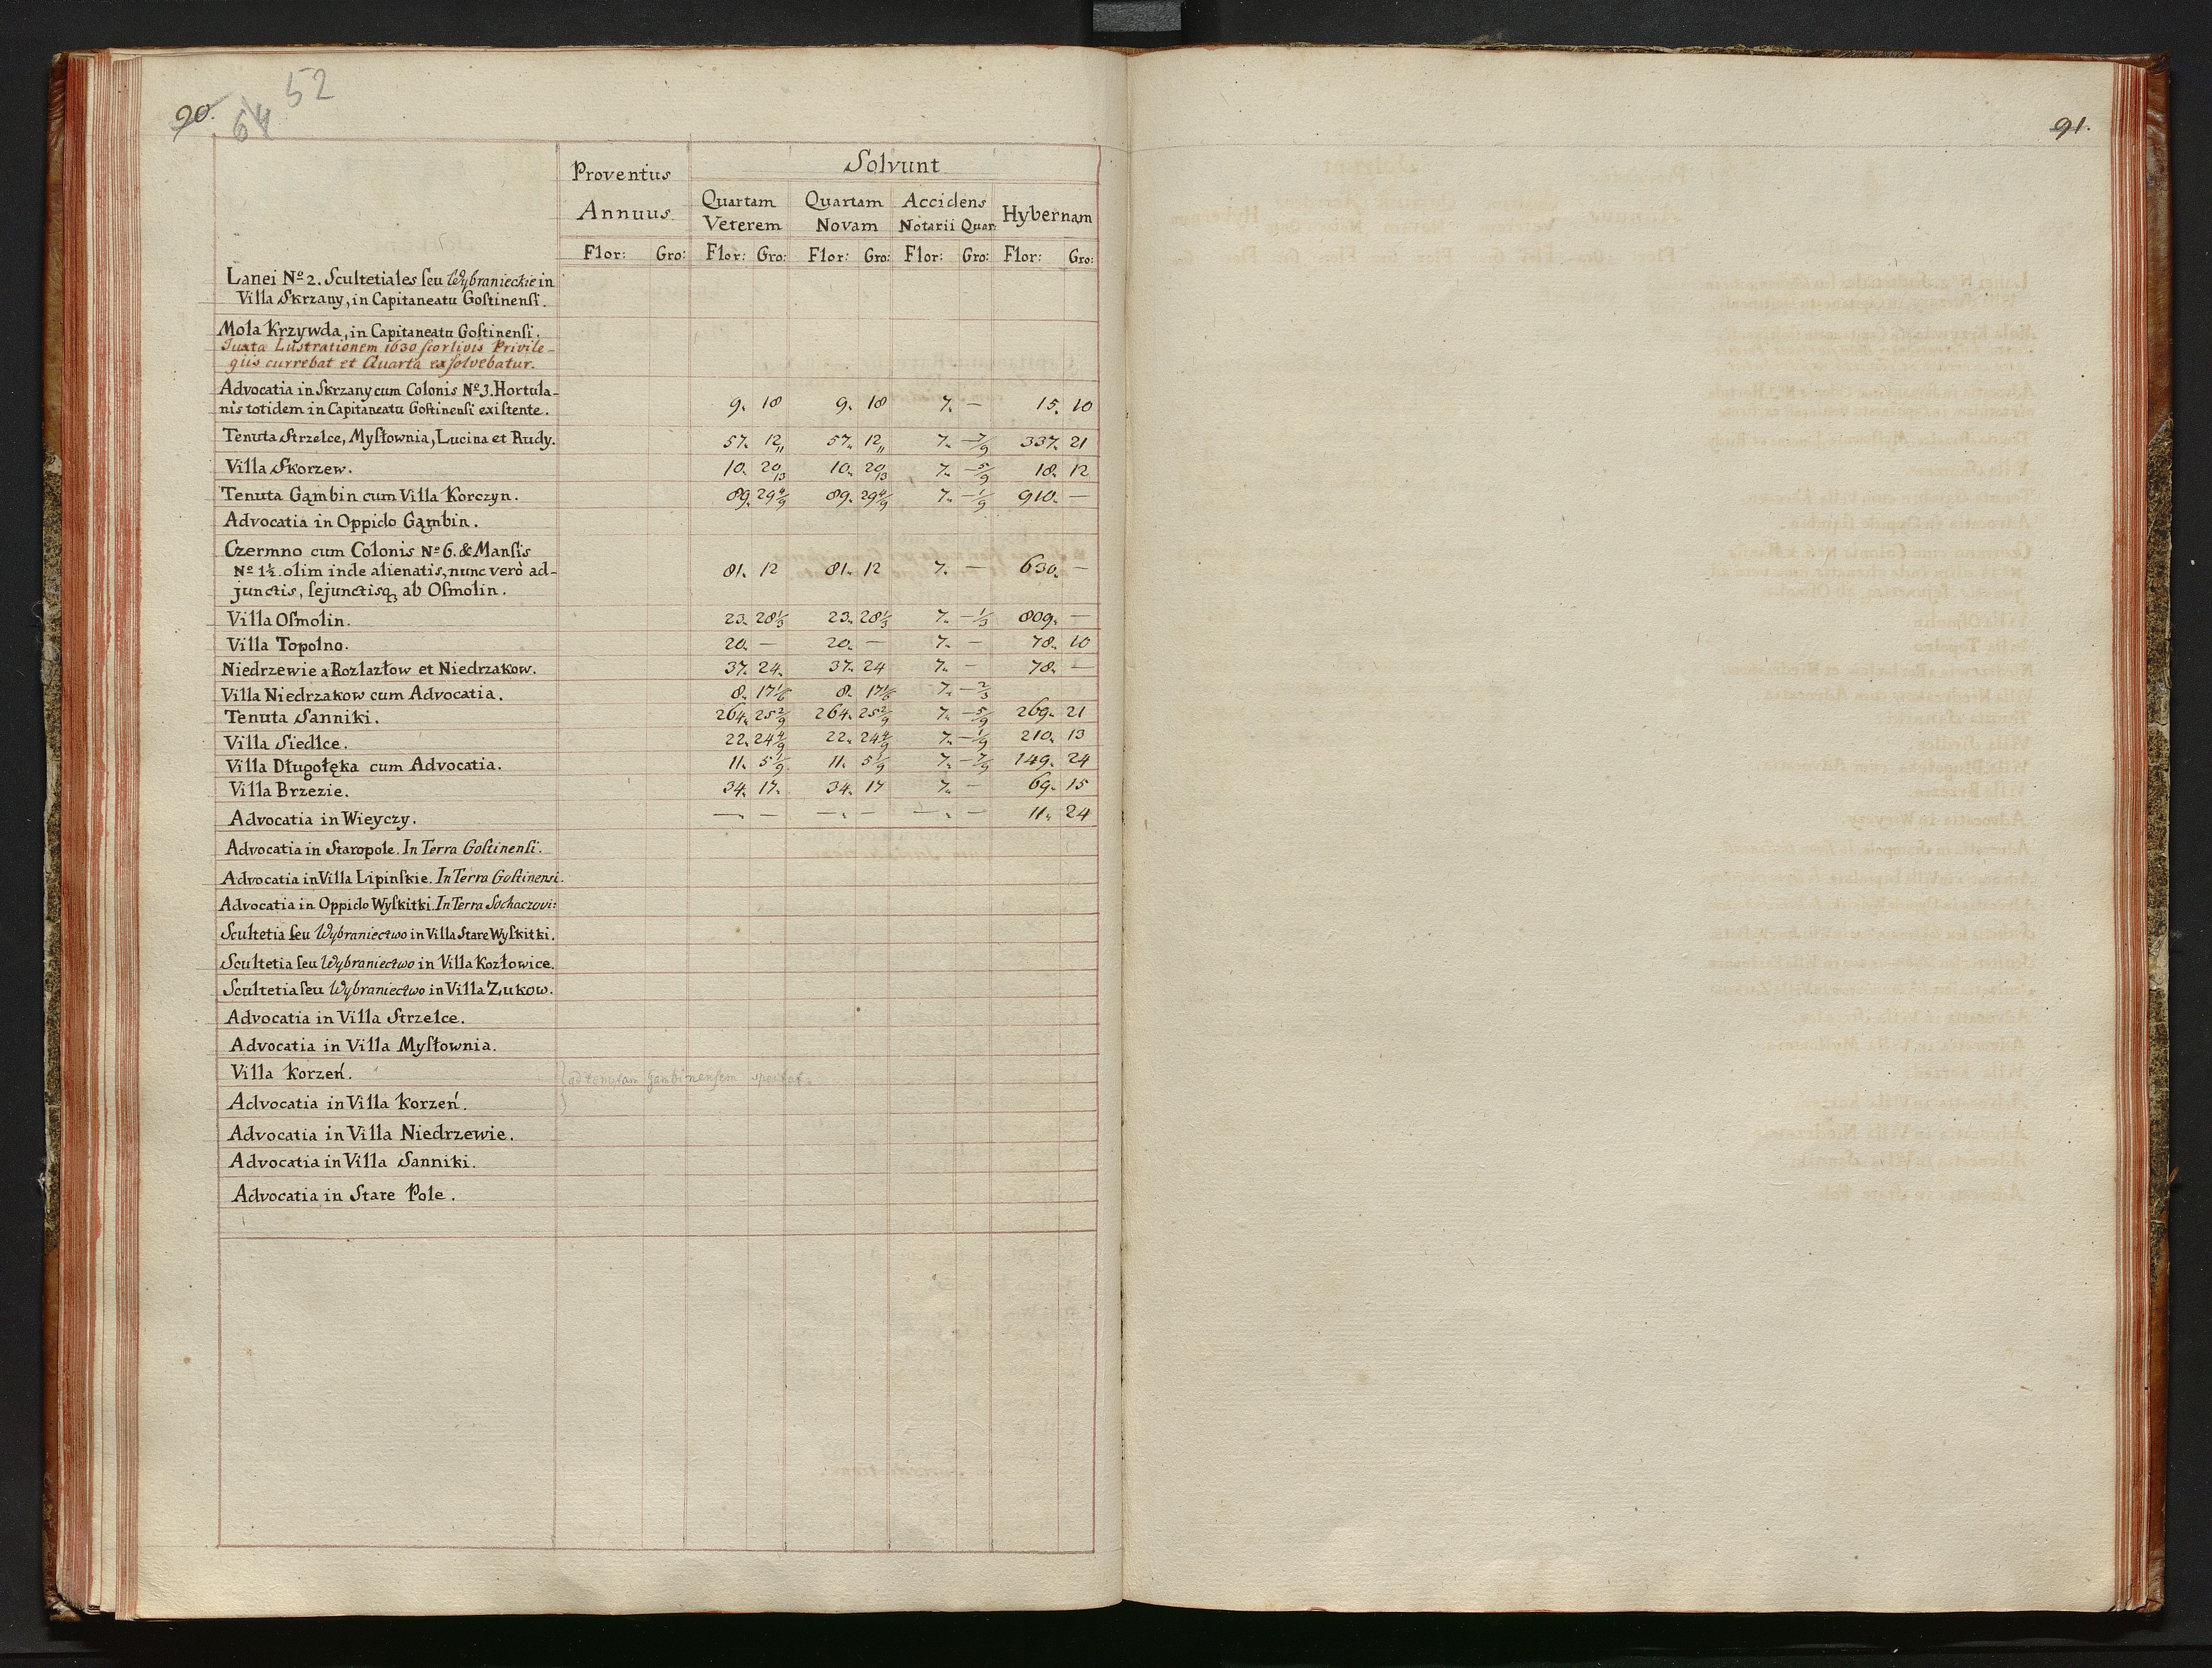 90.
64
52
91.
Solvunt
Proventus
Annuus.
Quartam Quartam Accidens Hybernam
Veterem Novam Notarii Quar:
Flor: Gro: Flor: Gro: Flor: Gro: Flor: Gro: Flor: Gro:
Lanei Nº 2. Scultetiales ſeu Wybranieckie in
Villa Skrzany, in Capitaneatu Goſtinenſi.
Mola Krzywda, in Capitaneatu Goſtinenſi.
Juxta Lustrationem 1630 ſcorſivis Privile-
giis currebat et Quarta exſolvebatur.
Advocatia in Skrzany cum Colonis Nº 3. Hortula-
nis totidem in Capitaneatu Goſtinenſi exiſtente. 9. 18 9. 18 7. — 15. 10
Tenuta Strzelce, Myſłownia, Lucina et Rudy. 57. 12 57. 12 7. — 7/9 337. 21
Villa Skorzew. 10. 20 10. 20 7. — 5/9 18. 12
Tenuta Gąmbin cum Villa Korczyn. 89. 29 4/9 89. 29 4/9 7. — 1/9 910. —
Advocatia in Oppido Gąmbin.
Czermno cum Colonis Nº 6. & Manſis
Nº 1½. olim inde alienatis, nunc verò ad- 81. 12 81. 12 7. — 630. —
junctis, ſejunctisq ab Oſmolin.
Villa Oſmolin. 23. 28 1/3 23. 28 1/3 7. — 1/3 809. —
Villa Topolno. 20. — 20. — 7. — 78. 10
Niedrzewie a Rozlazłow et Niedrzakow. 37. 24. 37. 24 7. — 78. —
Villa Niedrzakow cum Advocatia. 8. 17 1/6 8. 17 1/6 7. — 2/3
Tenuta Sanniki. 264. 25 2/9 264. 25 2/9 7. — 5/9 269. 21
Villa Siedlce. 22. 24 4/9 22. 24 4/9 7. — 1/9 210. 13
Villa Długołęka cum Advocatia. 11. 5 1/9 11. 5 1/9 7. — 7/9 149. 24
Villa Brzezie. 34. 17. 34. 17 7. — 69. 15
Advocatia in Wieyczy. —. — —. — —. — 11. 24
Advocatia in Staropole. In Terra Goſtinenſi.
Advocatia in Villa Lipinſkie. In Terra Goſtinensi.
Advocatia in Oppido Wyſkitki. In Terra Sochaczovi:
Scultetia ſeu Wybraniectwo in Villa Stare Wyſkitki.
Scultetia ſeu Wybraniectwo in Villa Kozłowice.
Scultetia ſeu Wybraniectwo in Villa Zukow.
Advocatia in Villa Strzelce.
Advocatia in Villa Myſłownia.
Villa Korzeń. ad tenutam Gambinenſem spectat.
Advocatia in Villa Korzeń.
Advocatia in Villa Niedrzewie.
Advocatia in Villa Sanniki.
Advocatia in Stare Pole.